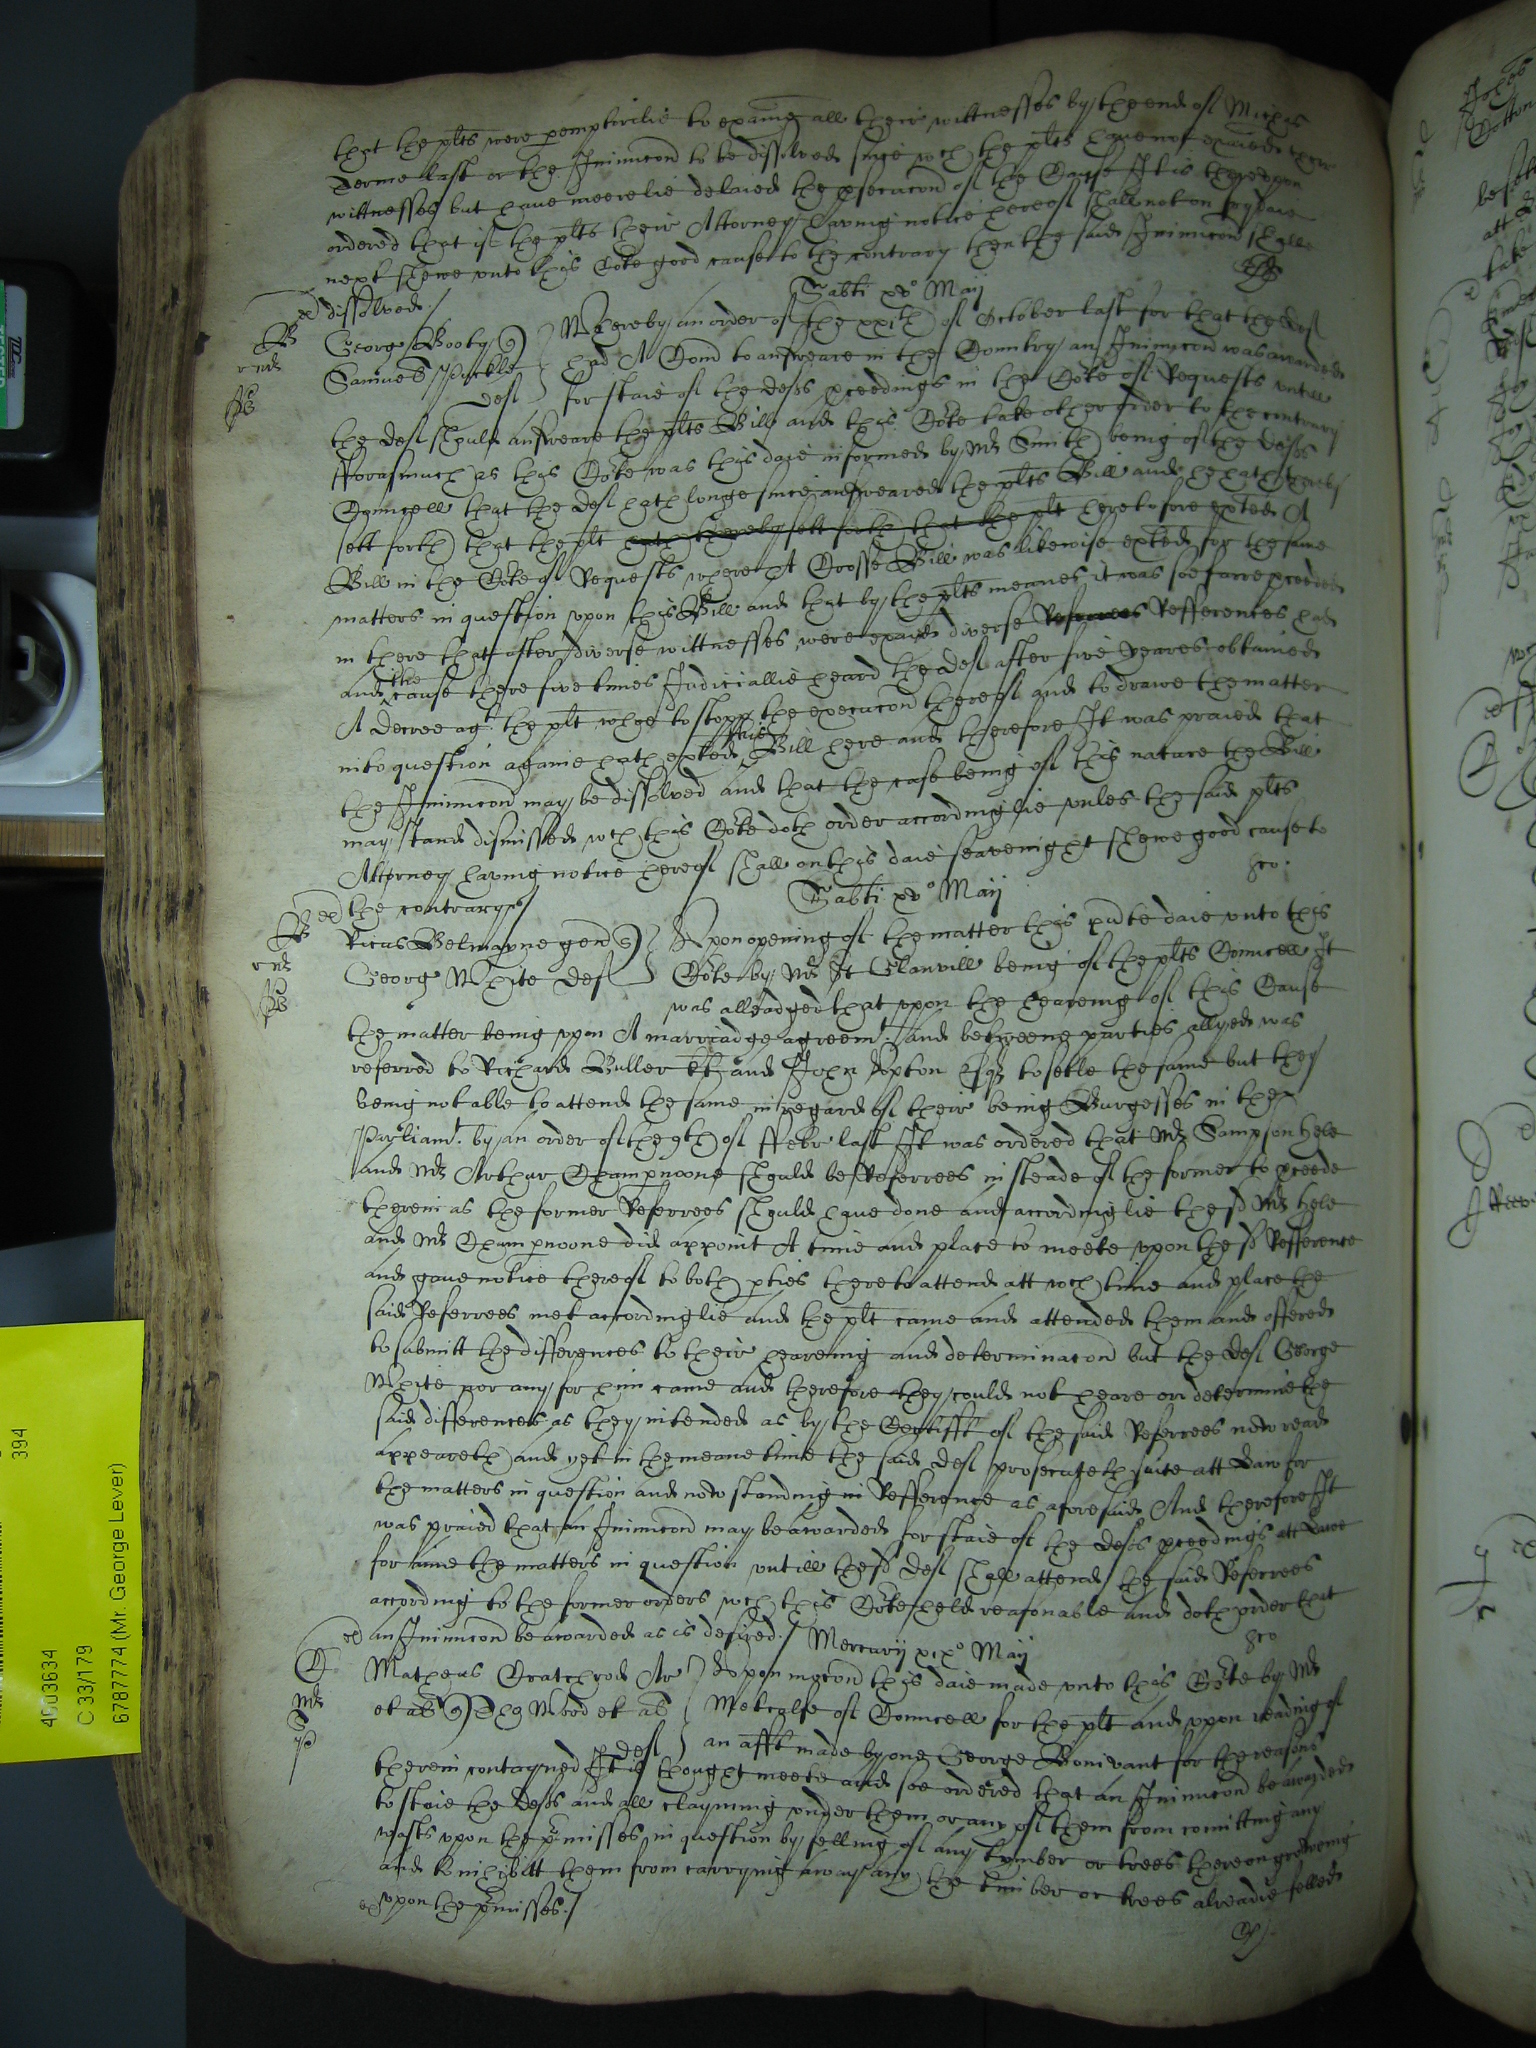 that the plts were pemptorilie to examine all their wittnesses by the end of Michis
Terme last or the Iniunccon to be dissolved since wch the plts have not examined their
wittnesses but have meerelie delaied the psecucon of the Cause It is thereupon
ordered that if the plts their Attorney having notice hereof shall not on frydaie
next shewe unto this Cote good cause to the contrary then the said Iniunccon shalbe
dissolved /
Sabti xvo Maij
Georg Booty q
Samuel Puckle
def
Whereby an order of the xxith of October last for that the def
had A Comd to answeare in the Countrey an Iniunccon was awarded
for staie of the defts pceedings in the Cote of Requests untill
the def should answeare the plts Bill and this Cote take other order to the contrary
fforasmuch as this Cote was this daie informed by Mr Smith being of the defts
Councell that the def hath longe since answeared the plts Bill and he hath thereby
sett forth that the plt hath thereby sett forth that the plt heretofore exted A
Bill in the Cote of Requests where A Crosse Bill was likewise exted for the same
matters in question upon this Bill and that by the plts meanes it was soe farre pceeded
in there that after diverse wittnesses were examd diverse Refferences had
and the cause there five times Judiciallie heard the def after five yeares obtained
A Decree agt the plt whoe to stopp the execucon thereof and to drawe the matter
into question againe hath exted this Bill here and therefore It was praied that
the Iniunccon may be dissolved and that the case being of this nature the Bill
may stand dismissed wch this Cote doth order accordinglie unles the said plts
Attorney having notice hereof shall on this daie seavenight shewe good cause to
the contrary /
Sabti xvo Maij
Ricus Belmayne gen q
Georg White def
Upon opening of the matter this pnte daie unto this
Cote by Mr St Glanvill being of the plts Councell It
was alleadged that upon the heareing of this Cause
the matter being upon A marriadge agreemt and betweene parties allyed was
referred to Richard Buller kt and John Upton Esqr to setle the same but they
being not able to attend the same in regard of their being Burgesses in the
Parliamt by an order of the 9th of ffebr last It was ordered that Mr Sampson Hele
and Mr Arthur Champnoone should be Referrees in steade of the former to pceede
therein as the former Referrees should have done and accordinglie the sd Mr Hele
and Mr Champnoone did appoint A time and place to meete upon the sd Refference
and gave notice thereof to both pties there to attend att wch time and place the
said Referrees met accordinglie and the plt came and attended them and offered
to submitt the differences to their heareing and determinacon but the def George
White nor any for him came and therefore they could not heare or determine the
said differences as they intended as by the Certifft of the said Referrees now read
appeareth and yet in the meane time the said def prosecuteth suite att Law for
the matters in question and now standing in Refference as aforesaid And therefore It
was praied that an Iniunccon may be awarded for staie of the defts pceedings att Lawe
for the matters in question untill the sd def shall attend the said Referrees
according to the former orders wch this Cote held reasonable and doth order that
an Iniunccon be awarded as is desired /
Mercurij xixo Maij
Matheus Cratchrod Ar
et al q Wood et al
def
Upon mocon this daie made unto this Cote by Mr
Metcalfe of Councell for the plt and upon reading of
an afft made by one George Bonivant for the reasons
therein contayned It is thought meete and soe ordered that an Iniunccon be awarded
to staie the defts and all clayming under them or any of them from comitting any
wasts upon the pmisses in question by felling of any tymber or trees thereon groweing
and to inhibitt them from carrying away any the timber or trees alreadie felled
upon the pmisses /
394
4003634
C 33/179
6787774 (Mr. George Lever)